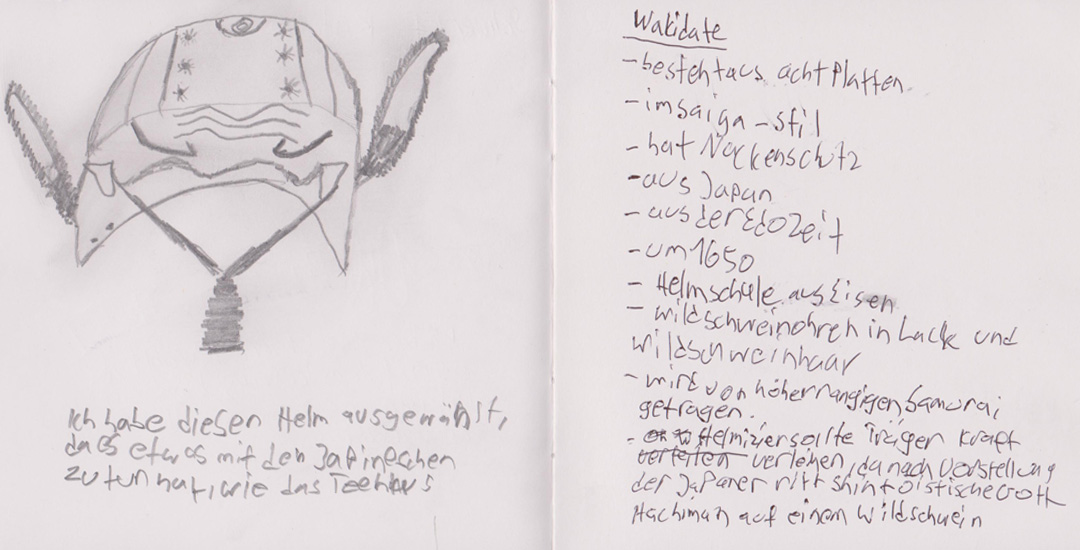 Ich habe diesen Helm ausgewählt,
dass etwas mit den Japineschen
zu tun hat, wie das Teehaus
Wakidate
- besteht aus acht Platten
- im saiga-stil
- hat Nackenschutz
- aus Japan
- aus der Edo Zeit
- um 1650
- Helmschule aus Eisen
- wildschweinohren in Lack und
wildschweinhaar
- wird von höherrangigen Samurai
getragen.
- Helmzier sollte Träger Kraft
verleihen, da nach Vorstellung
der Japaner ritt shintoistische Gott
Hachiman auf einem Wildschwein